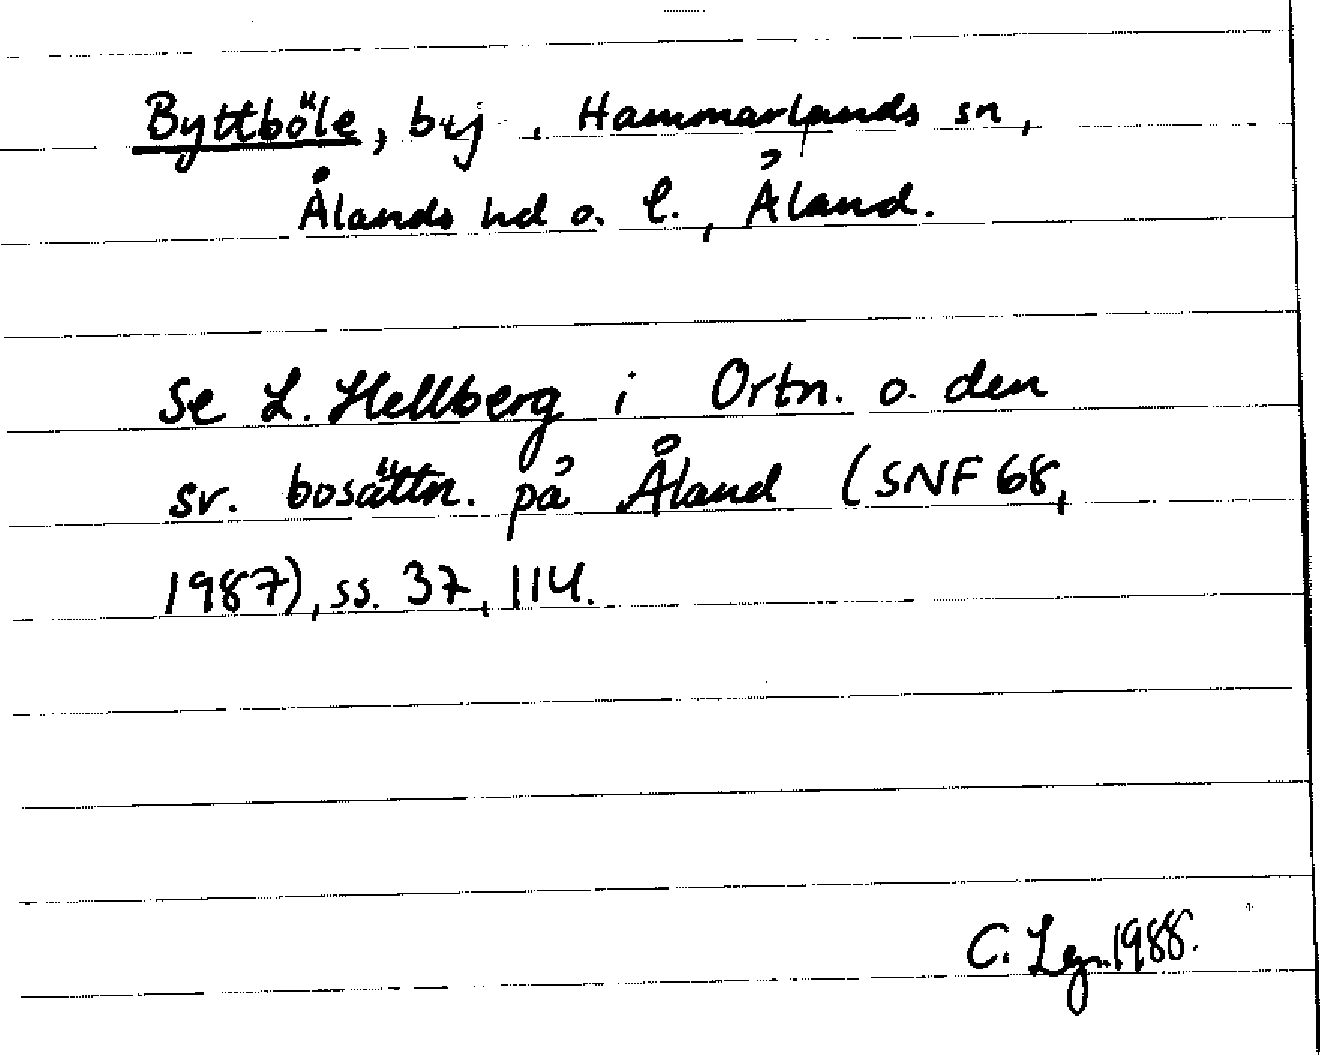 Byttböle, by, Hammarlands sn,
Ålands hd o. l., Åland.
Se L. Hellberg i Ortn. o. den
sv. bosättn. på Åland (SNF 68,
1987), ss. 37, 114.
C. 1988.